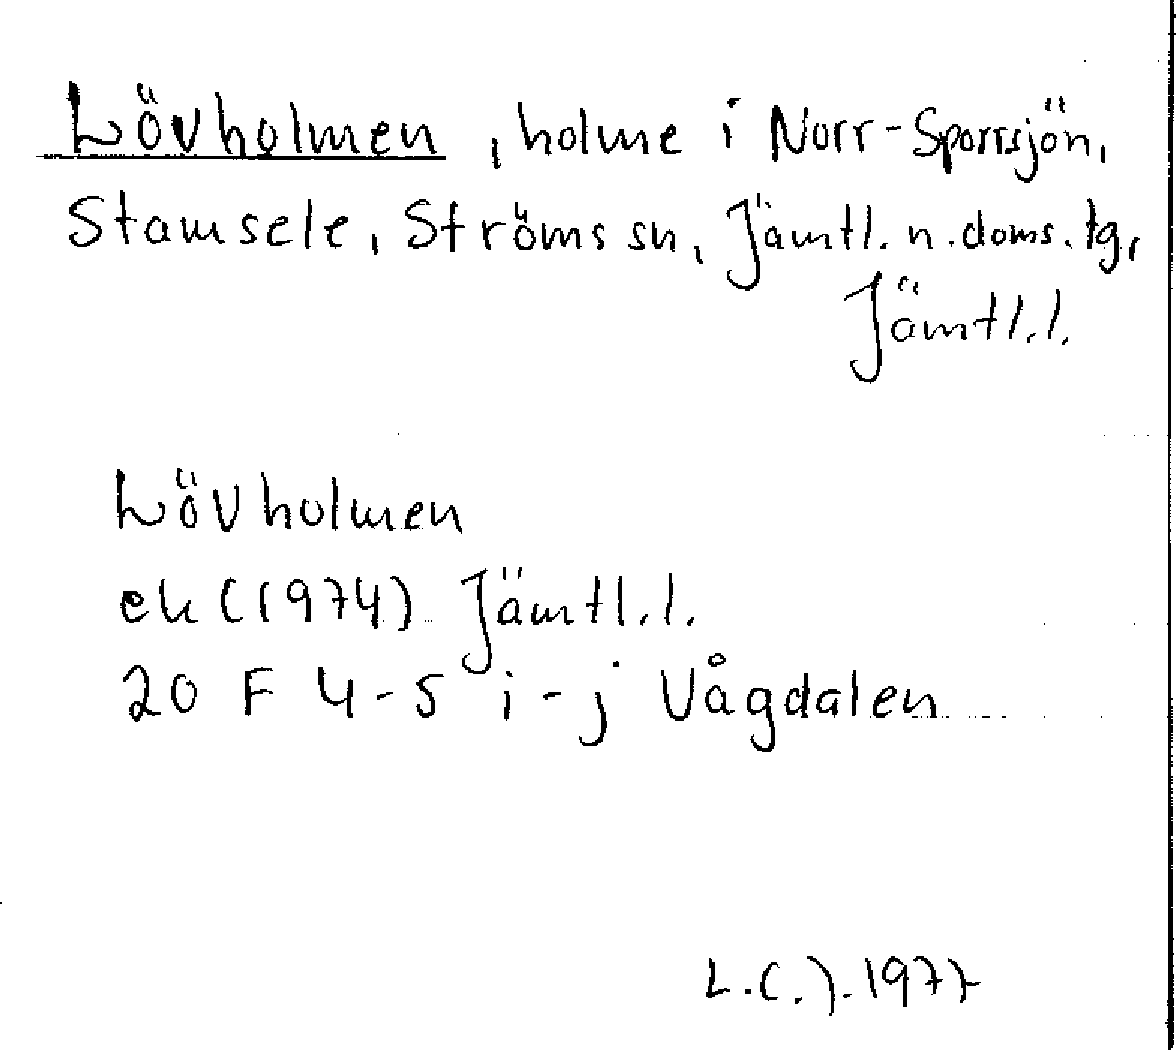 Lövholmen, holme i Norr-Sporrsjön,
Stamsele, Ströms sn, Jämtl. n. doms. tg,
Jämtl. l.
Lövholmen
ek (1974) Jämtl. l.
20 F 4-5 i-j Vågdalen
L.C.J. 1977